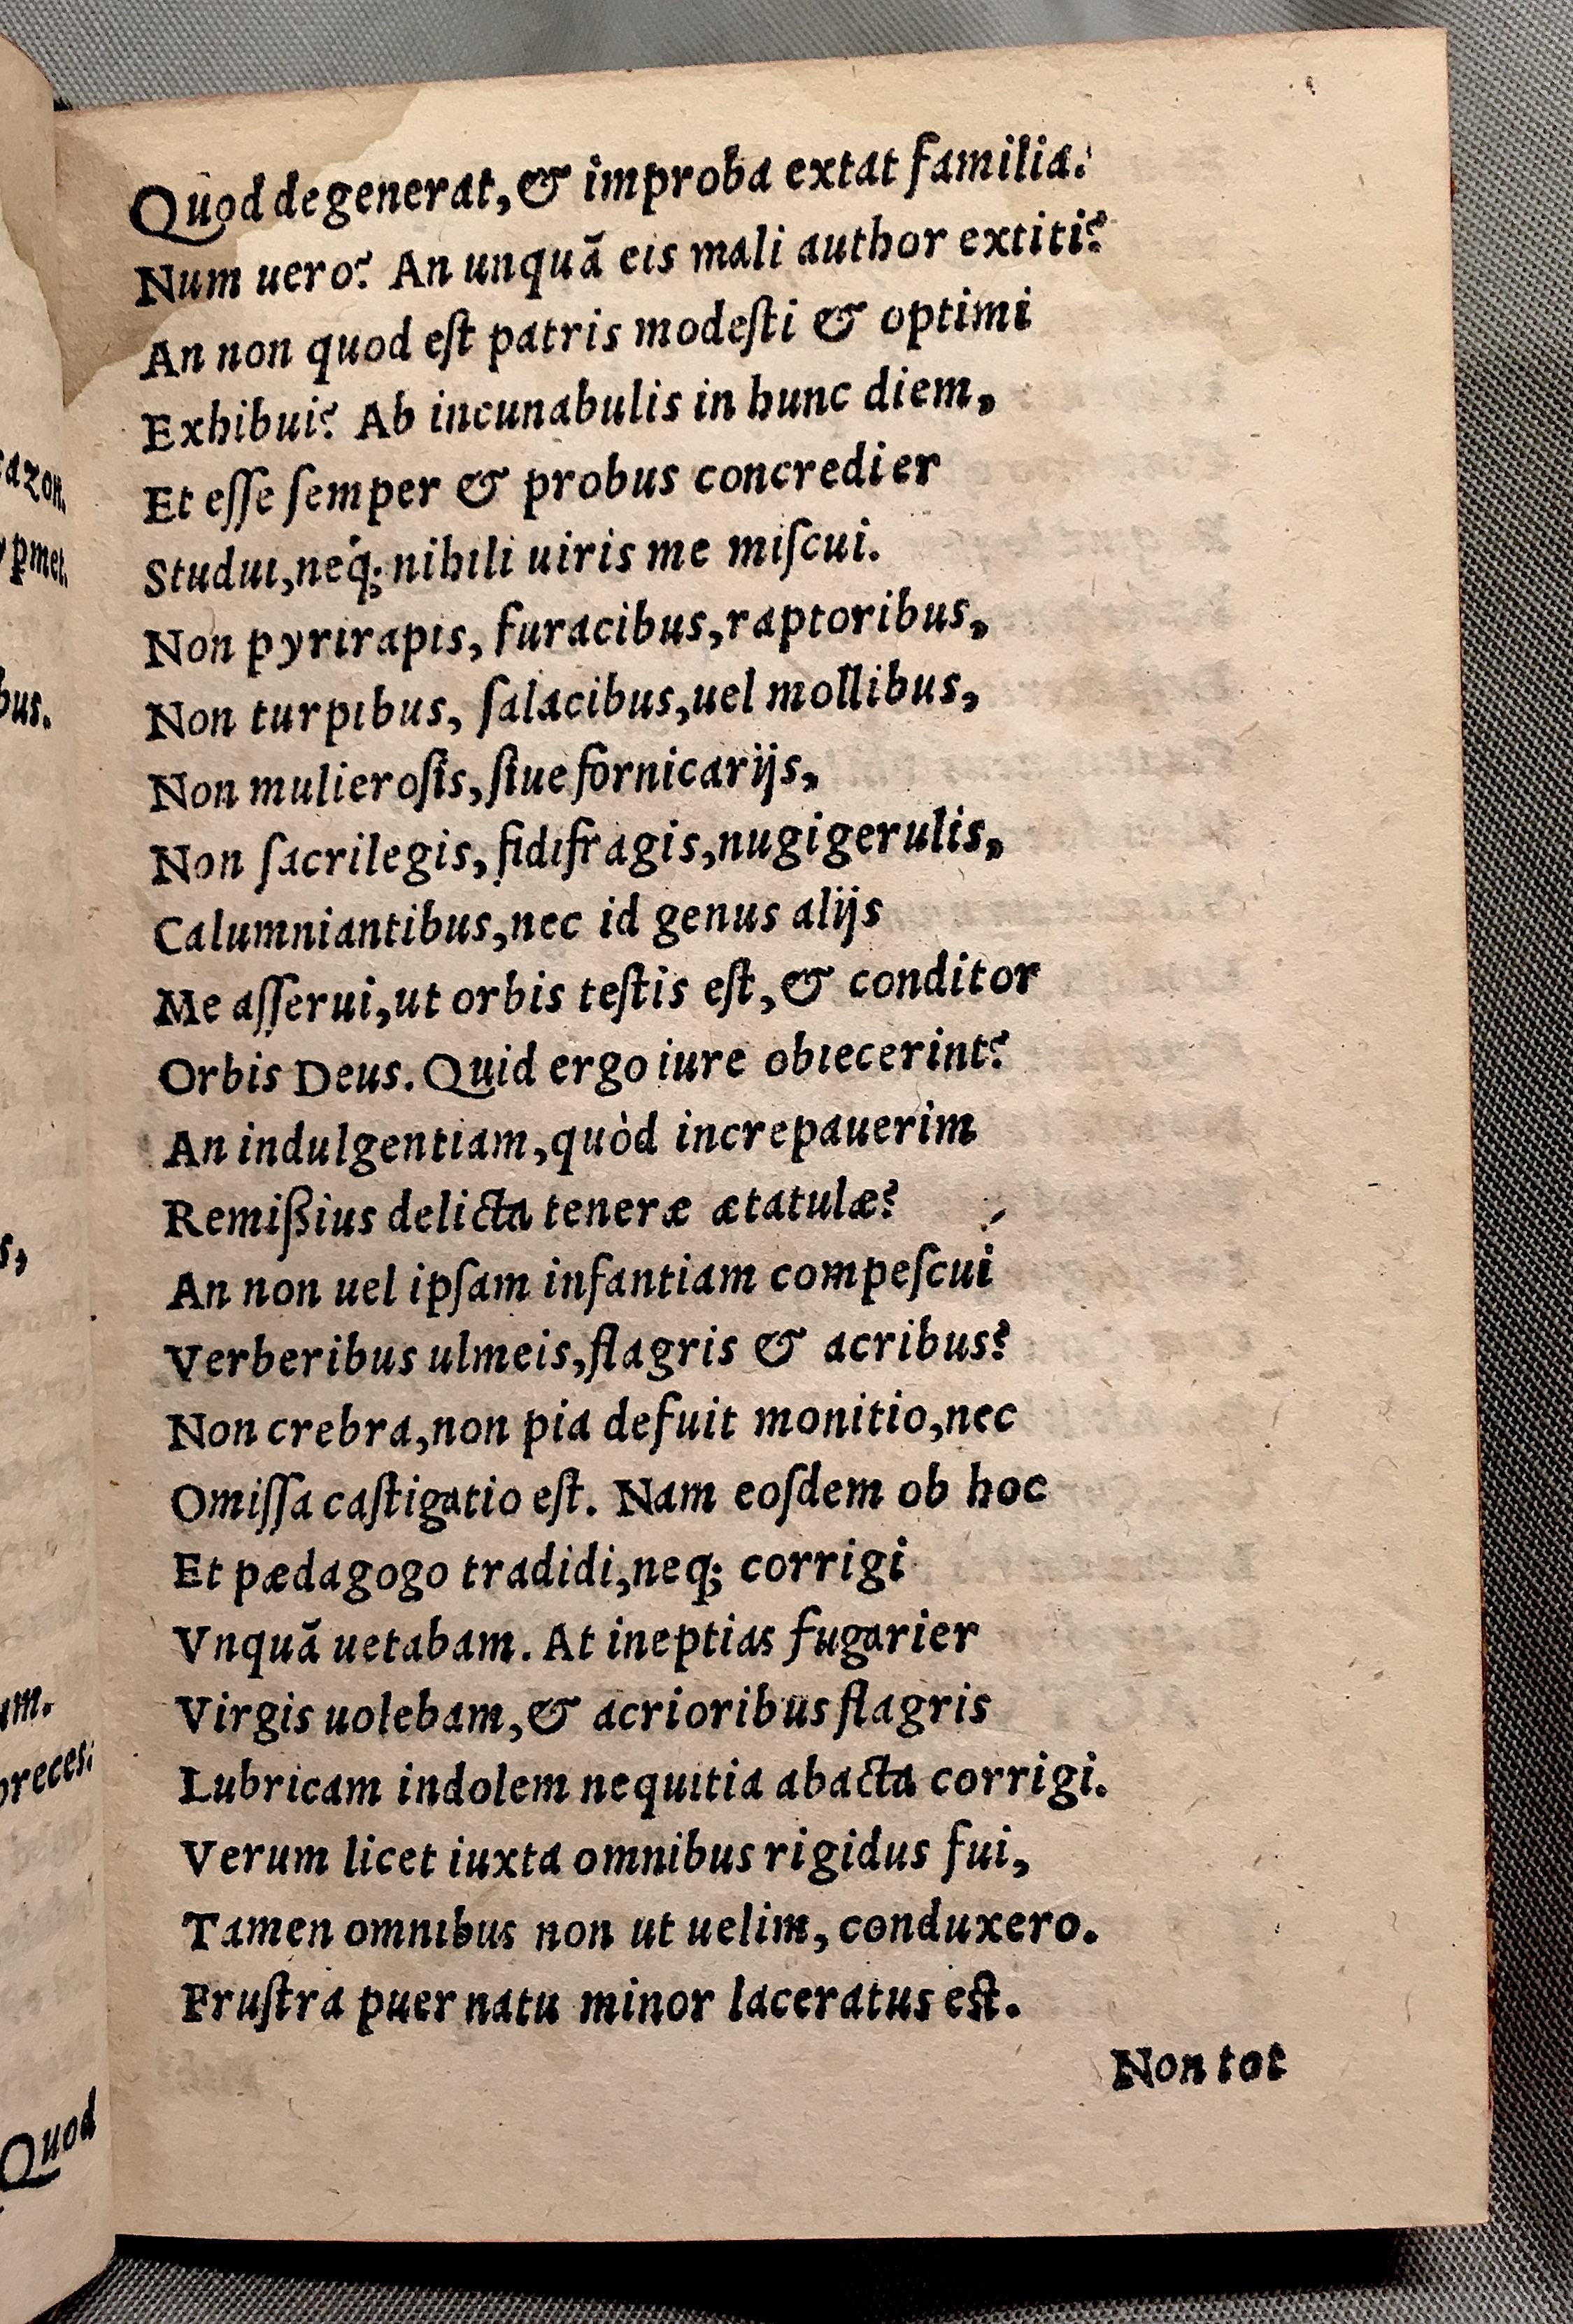 Quod degenerat, & improba extat familia?
Num uero? An unquā eis mali author extiti?
An non quod eſt patris modeſti & optimi
Exhibui? Ab incunabulis in hunc diem,
Et eſſe ſemper & probus concredier
Studui, neq; nihili uiris me miſcui.
Non pyrirapis, furacibus, raptoribus,
Non turpibus, ſalacibus, uel mollibus,
Non mulieroſis, ſiue fornicarijs,
Non ſacrilegis, fidifragis, nugigerulis,
Calumniantibus, nec id genus alijs
Me aſſerui, ut orbis teſtis eſt, & conditor
Orbis Deus. Quid ergo iure obiecerint?
An indulgentiam, quòd increpauerim
Remißius delicta teneræ ætatulæ?
An non uel ipſam infantiam compeſcui
Verberibus ulmeis, flagris & acribus?
Non crebra, non pia defuit monitio, nec
Omiſſa caſtigatio eſt. Nam eoſdem ob hoc
Et pædagogo tradidi, neq; corrigi
Vnquā uetabam. At ineptias fugarier
Virgis uolebam, & acrioribus flagris
Lubricam indolem nequitia abacta corrigi.
Verum licet iuxta omnibus rigidus fui,
Tamen omnibus non ut uelim, conduxero.
Fruſtra puer natu minor laceratus eſt.
Non tot
azon.
pmet.
bus.
s,
um.
preces:
Quod